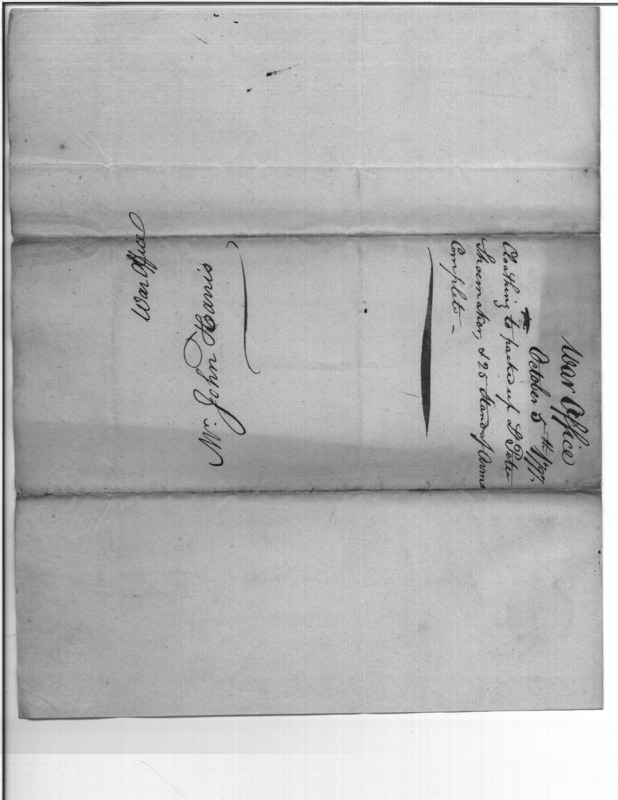 War Office
October 5th 1797
Cloathing to packed up Lt Peter
Shoemaker, & 25 Stand of Arms
Complete —
Mr. John Harris
War Office